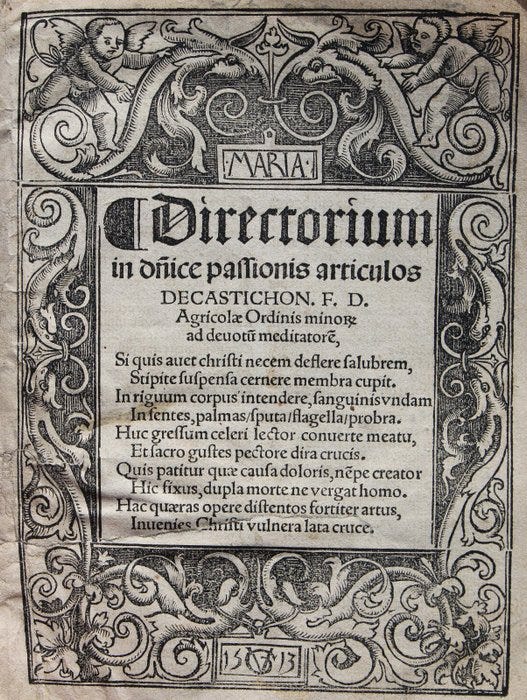 ·MARIA·
Directorium
in dñice passionis articulos
DECASTICHON. F. D.
Agricolæ Ordinis minoꝝ
ad deuotū meditatorē,
Si quis auet christi necem deflere salubrem,
Stipite suspensa cernere membra cupit.
In riguum corpus intendere, sanguinis vndam
In sentes, palmas/sputa/flagella/probra.
Huc gressum celeri lector conuerte meatu,
Et sacro gustes pectore dira crucis.
Quis patitur quæ causa doloris, nēpe creator
Hic fixus, dupla morte ne vergat homo.
Hac quæras opere distentos fortiter artus,
Inuenies Christi vulnera lata cruce.
15 13